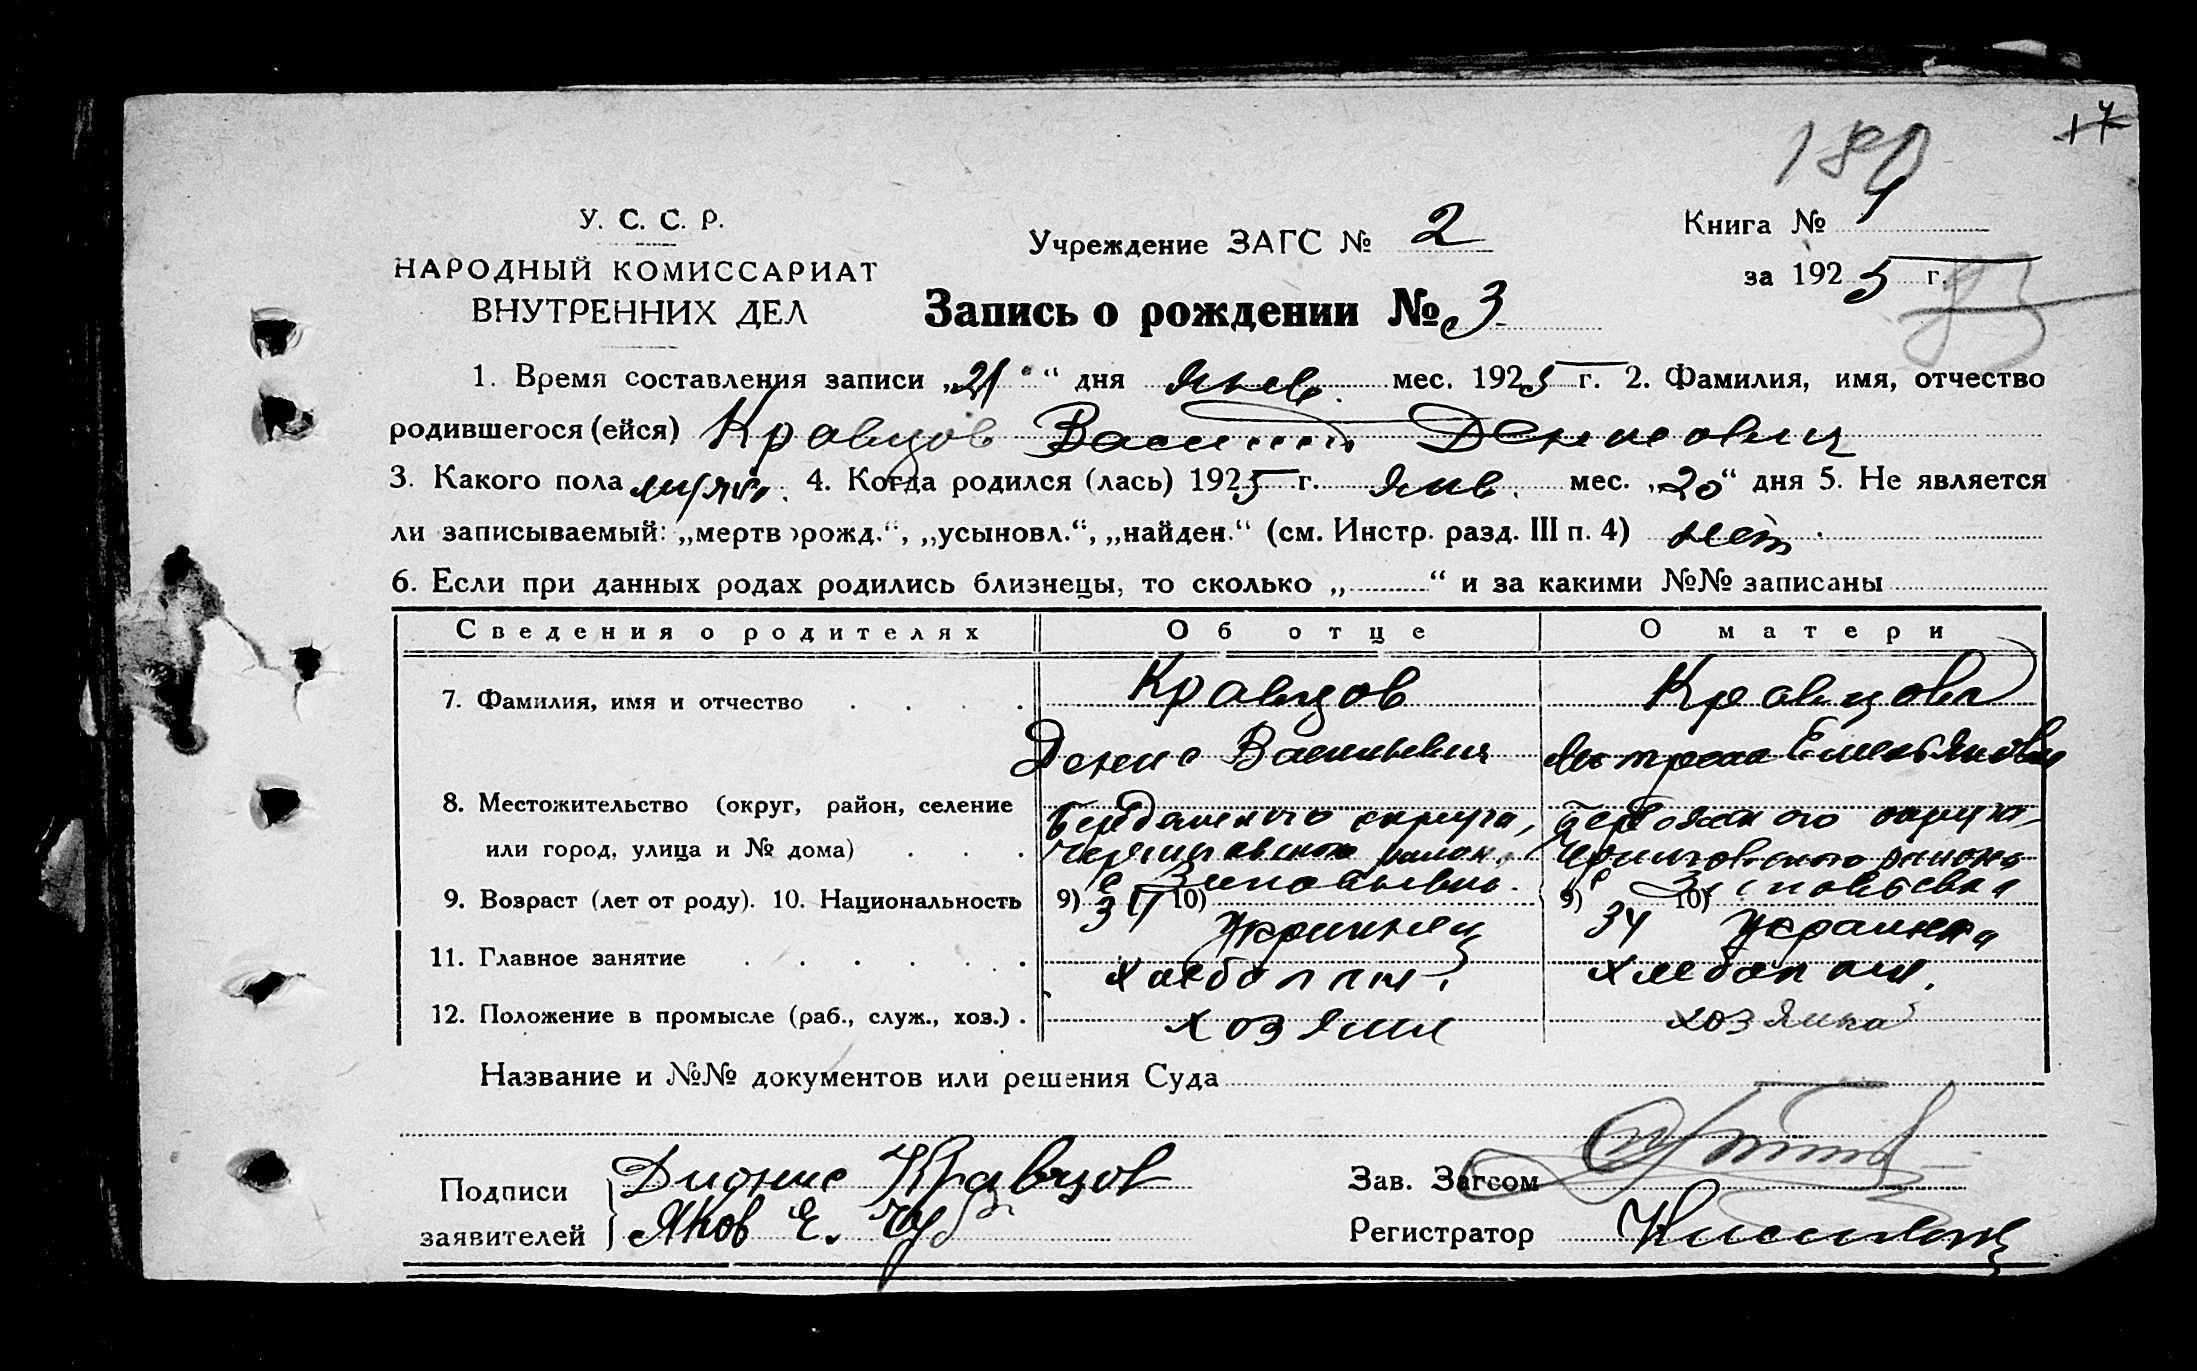 17
180
У. С. С. Р.
НАРОДНЫЙ КОМИССАРИАТ
ВНУТРЕННИХ ДЕЛ
Учреждение ЗАГС № 2
Книга № 1
за 1925 г.
83
Запись о рождении № 3
1. Время составления записи „21“ дня Янв. мес. 1925 г. 2. Фамилия, имя, отчество
родившегося (ейся) Кравцов Василий Денисович
3. Какого пола мужск. 4. Когда родился (лась) 1925 г. Янв. мес. „20“ дня 5. Не является
ли записываемый: „мертворожд.“, „усыновл.“, „найден.“ (см. Инстр. разд. III п. 4) нет.
6. Если при данных родах родились близнецы, то сколько „ “ и за какими №№ записаны
Сведения о родителях Об отце О матери
7. Фамилия, имя и отчество Кравцов Кравцова
Денис Васильевич Емельяновна
8. Местожительство (округ, район, селение Бердянского округа, Бердянского округа,
или город, улица и № дома) Черниговского район. Черниговского района
с Зиновьевка. с Зиновьевка
9. Возраст (лет от роду). 10. Национальность 9) 10) Украинец 9) 34 10) Украинка
11. Главное занятие хлебопаш. хлебопаш.
12. Положение в промысле (раб., служ., хоз.) хозяин хозяйка
Название и №№ документов или решения Суда
Подписи Дионис Кравцов Зав. Загсом
заявителей Яков Е. Чуб Регистратор